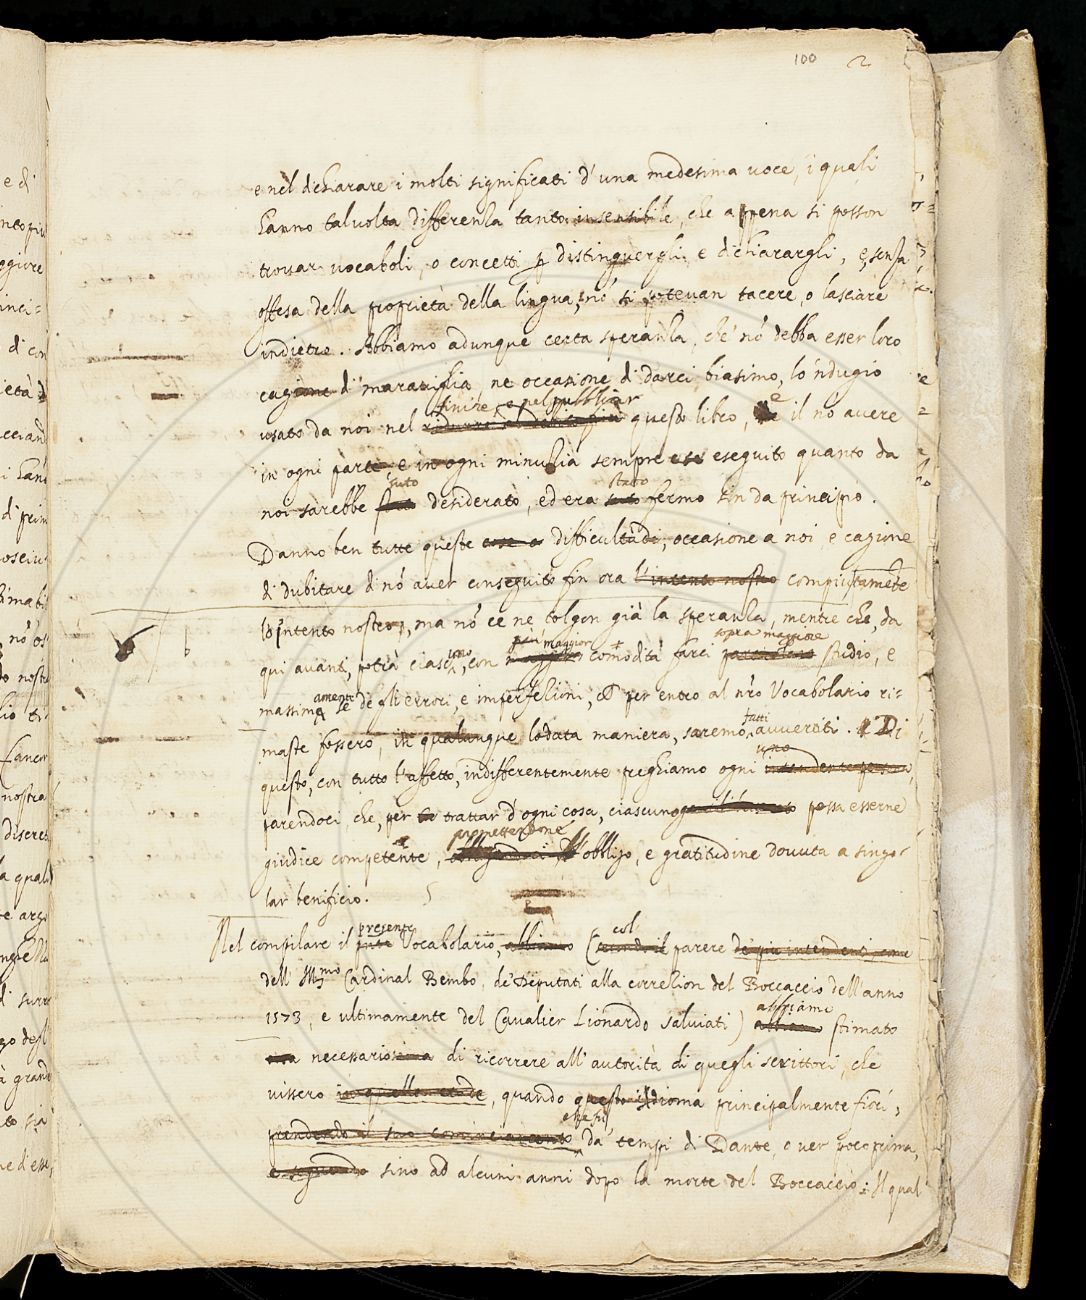 100 2
e nel dichiarare i molti significati d'una medesima voce, i quali
hanno talvolta differenza tanto insensibile, che appena si posson
trovar vocaboli, o concetti p distinguergli, e dichiarargli, e, senza
offesa della proprietà della lingua, nō si potevan tacere, o lasciare
indietro. Abbiamo adunque certa speranza, che nō debba esser loro
cagione di maraviglia, ne occasione di darci biasimo, lo 'ndugio
finire, e nel pubblicar
usato da noi nel questo libro, e il nō avere
in ogni parte, e in ogni minuzia sempre eseguito quanto da
suto stato
noi sarebbe desiderato, ed era suto fermo sin da principio.
Danno ben tutte queste cose difficultà di occasione a noi, e cagione
di dubitare di nō aver conseguito fin ora l'intento nostro compiutamēte
lo 'ntento nostro, ma nō ce ne tolgon già la speranza, mentre che, da
più maggior + sopra maggiore
qui avanti, potrà ciascuno, con maggior comodità farci particolare studio, e
massimamente se degli errori, e imperfezioni, che per entro al nr̄o Vocabolario ri=
fatti
maste fossero, in qualunque lodata maniera, saremo avvertiti. Di
uno
questo, con tutto l'affetto, indifferentemente preghiamo ogni intendente persona,
parendoci, che, per trattar d'ogni cosa, ciascuno possa esserne
promettendone
giudice competente, obbligo, e gratitudine dovuta a singo-
lar benificio.
presente col
Nel compilare il Vocabolario, abbiamo (secondo il parere de più intendenti, come
dell' Ill.mo Cardinal Bembo, de' Deputati alla correzion del Boccaccio dell'anno
abbiamo
1573, e ultimamente del Cavalier Lionardo Salviati) stimato
necessario di ricorrere all'autorità di quegli scrittori, che
vissero in quella etade, quando questo idioma principalmente fiorì,
che fu
prendendo il suo cominciamento da' tempi di Dante, o ver poco prima,
e seguendo sino ad alcuni anni dopo la morte del Boccaccio: Il qual